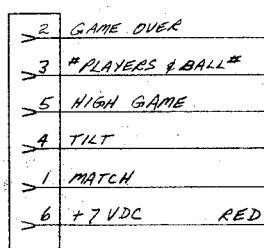 2 GAME OVER
3 #PLAYERS & BALL#
5 HIGH GAME
4 TILT
1 MATCH
6 +7 VDC RED